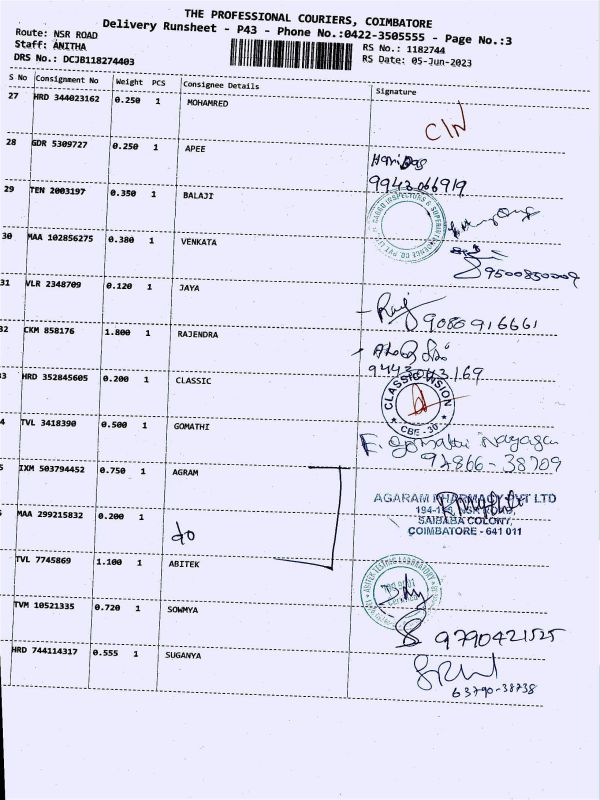 THE PROFESSIONAL COURIERS, COIMBATORE
Delivery Runsheet - P43 - Phone No.:0422-3505555 - Page No.:3
Route: NSR ROAD
Staff: ANITHA RS No.: 1182744
DRS No.: DCJB118274403 RS Date: 05-Jun-2023
S No Consignment No Weight PCS Consignee Details Signature
27 HRD 344023162 0.250 1 MOHAMRED
C/N
28 GDR 5309727 0.250 1 APEE
Hari Das
9943066919
29 TEN 2003197 0.350 1 BALAJI
30 MAA 102856275 0.380 1 VENKATA
9500850009
31 VLR 2348709 0.120 1 JAYA
9080916661
32 CKM 858176 1.800 1 RAJENDRA
9443043169
33 HRD 352845605 0.200 1 CLASSIC
CLASSIC VISION
CBE-30
4 TVL 3418390 0.500 1 GOMATHI
97866-38709
5 IXM 503794452 0.750 1 AGRAM
AGARAM PHARMACY PVT LTD
NSR ROAD,
SAIBABA COLONY,
COIMBATORE - 641 011
MAA 299215832 0.200 1
do
TVL 7745869 1.100 1 ABITEK
TVM 10521335 0.720 1 SOWMYA
9790421525
HRD 744114317 0.555 1 SUGANYA
63790-38738